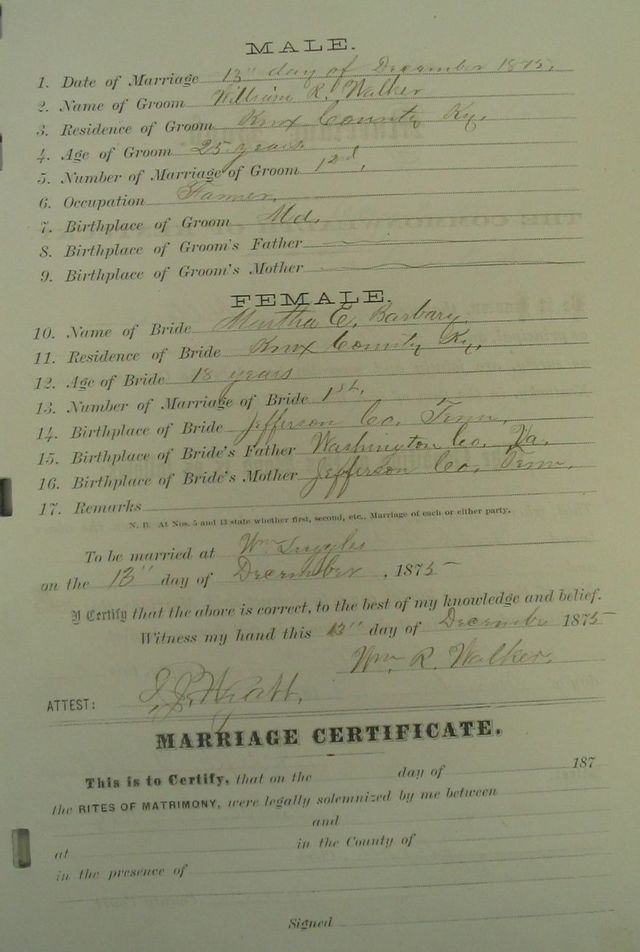 MALE.
1. Date of Marriage 13" day of December 1875.
2. Name of Groom William R. Walker
3. Residence of Groom Knox County Ky.
4. Age of Groom 25 years
5. Number of Marriage of Groom
6. Occupation Farmer.
7. Birthplace of Groom Md.
8. Birthplace of Groom's Father
9. Birthplace of Groom's Mother
FEMALE.
10. Name of Bride Martha E. Barbary
11. Residence of Bride Knox County Ky.
12. Age of Bride 18 years
13. Number of Marriage of Bride 1st.
14. Birthplace of Bride Jefferson Co. Tenn.
15. Birthplace of Bride's Father Washington Co. Va.
16. Birthplace of Bride's Mother Jefferson Co. Tenn.
17. Remarks
N. B. At Nos. 5 and 13 state whether first, second, etc., Marriage of each or either party.
To be married at Wm Tuggles
on the 13" day of December, 1875
I Certify that the above is correct, to the best of my knowledge and belief.
Witness my hand this 13" day of December 1875
Wm. R. Walker.
ATTEST: Wyatt.
MARRIAGE CERTIFICATE.
This is to Certify, that on the day of 187
the RITES OF MATRIMONY, were legally solemnized by me between
and
at in the County of
in the presence of
Signed